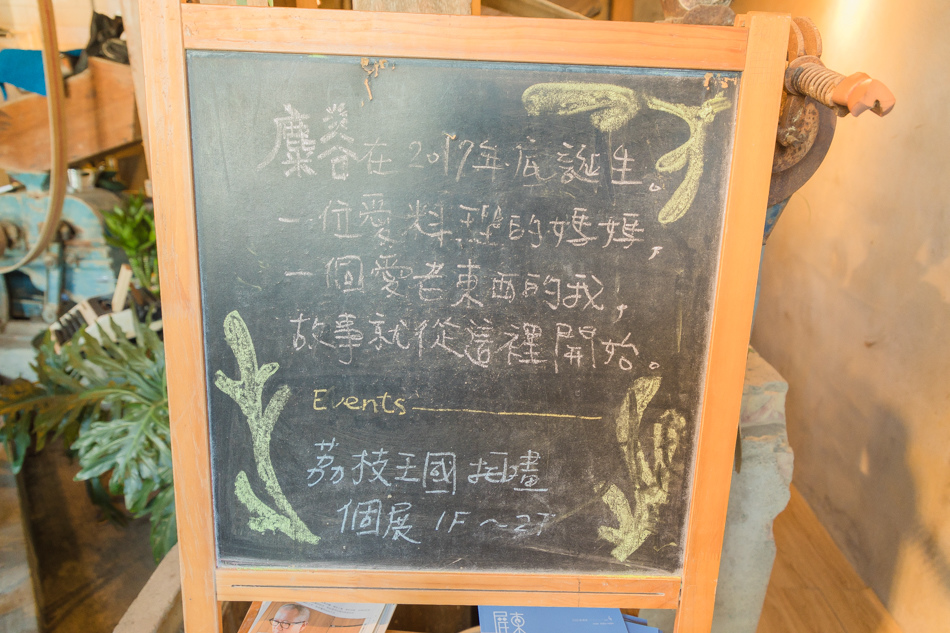 麋谷在2017年底誕生。
一位愛料理的媽媽，
一個愛老東西的我，
故事就從這裡開始。
Events
荔枝王國插畫
個展 1F～2F
屏東